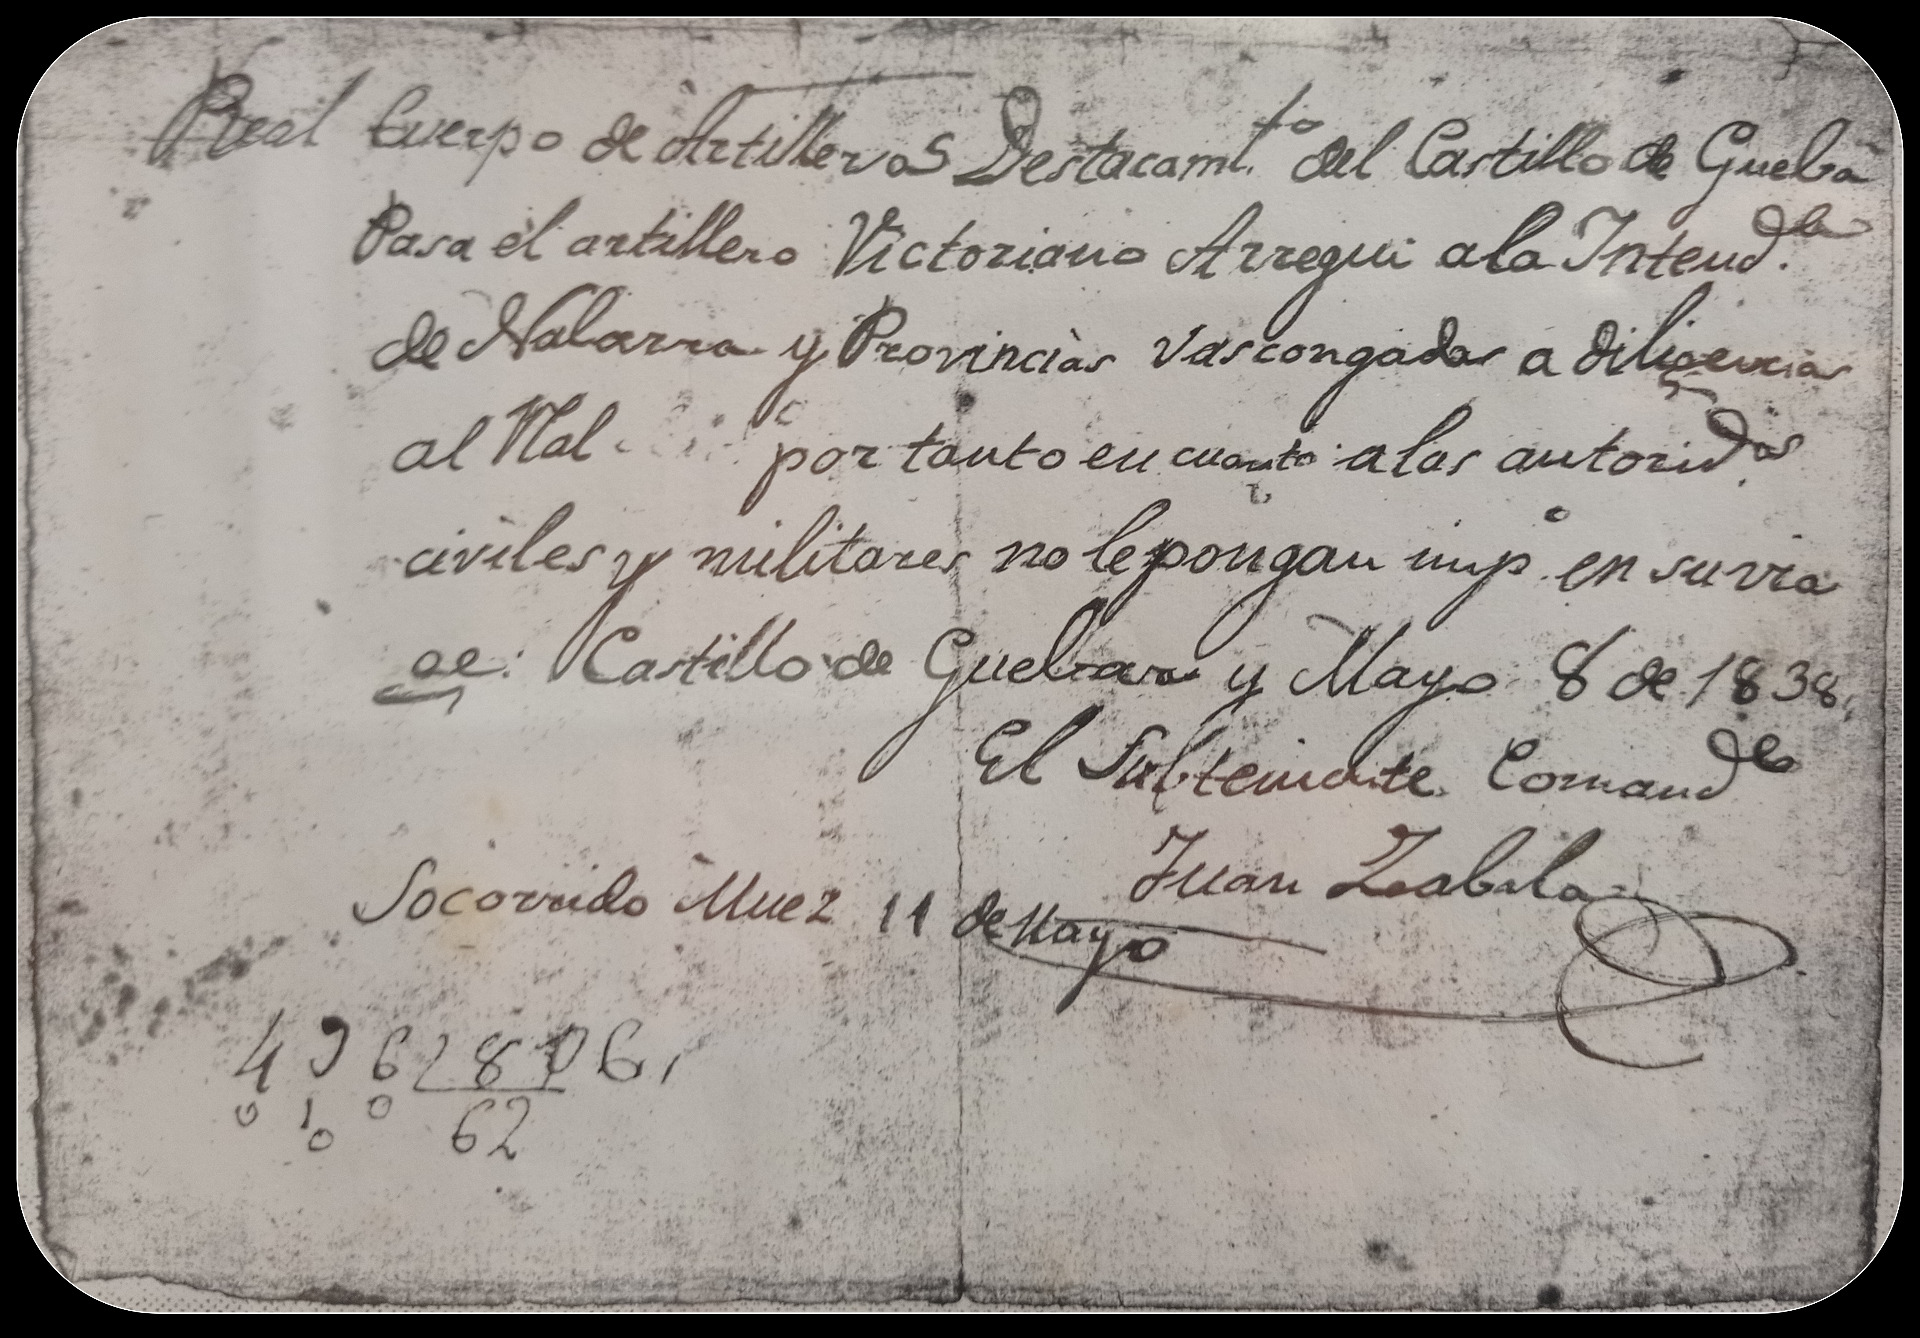 Real Cuerpo de Artilleros Destacamt.to del Castillo de Gueba
Pasa el artillero Victoriano Arregui a la Intend.da
de Nabarra y Provincias Vascongadas a diligencias
al Rl por tanto en cuanto a las autorid.das
civiles y militares no le pongan imp.o en su via
ge: Castillo de Guebara y Mayo 8 de 1838,
El Subteniente Comand.te
Juan Zabala
Socorrido Muez 11 de Mayo
4 9 6 2 8 0 6,
0 1 0 62
0